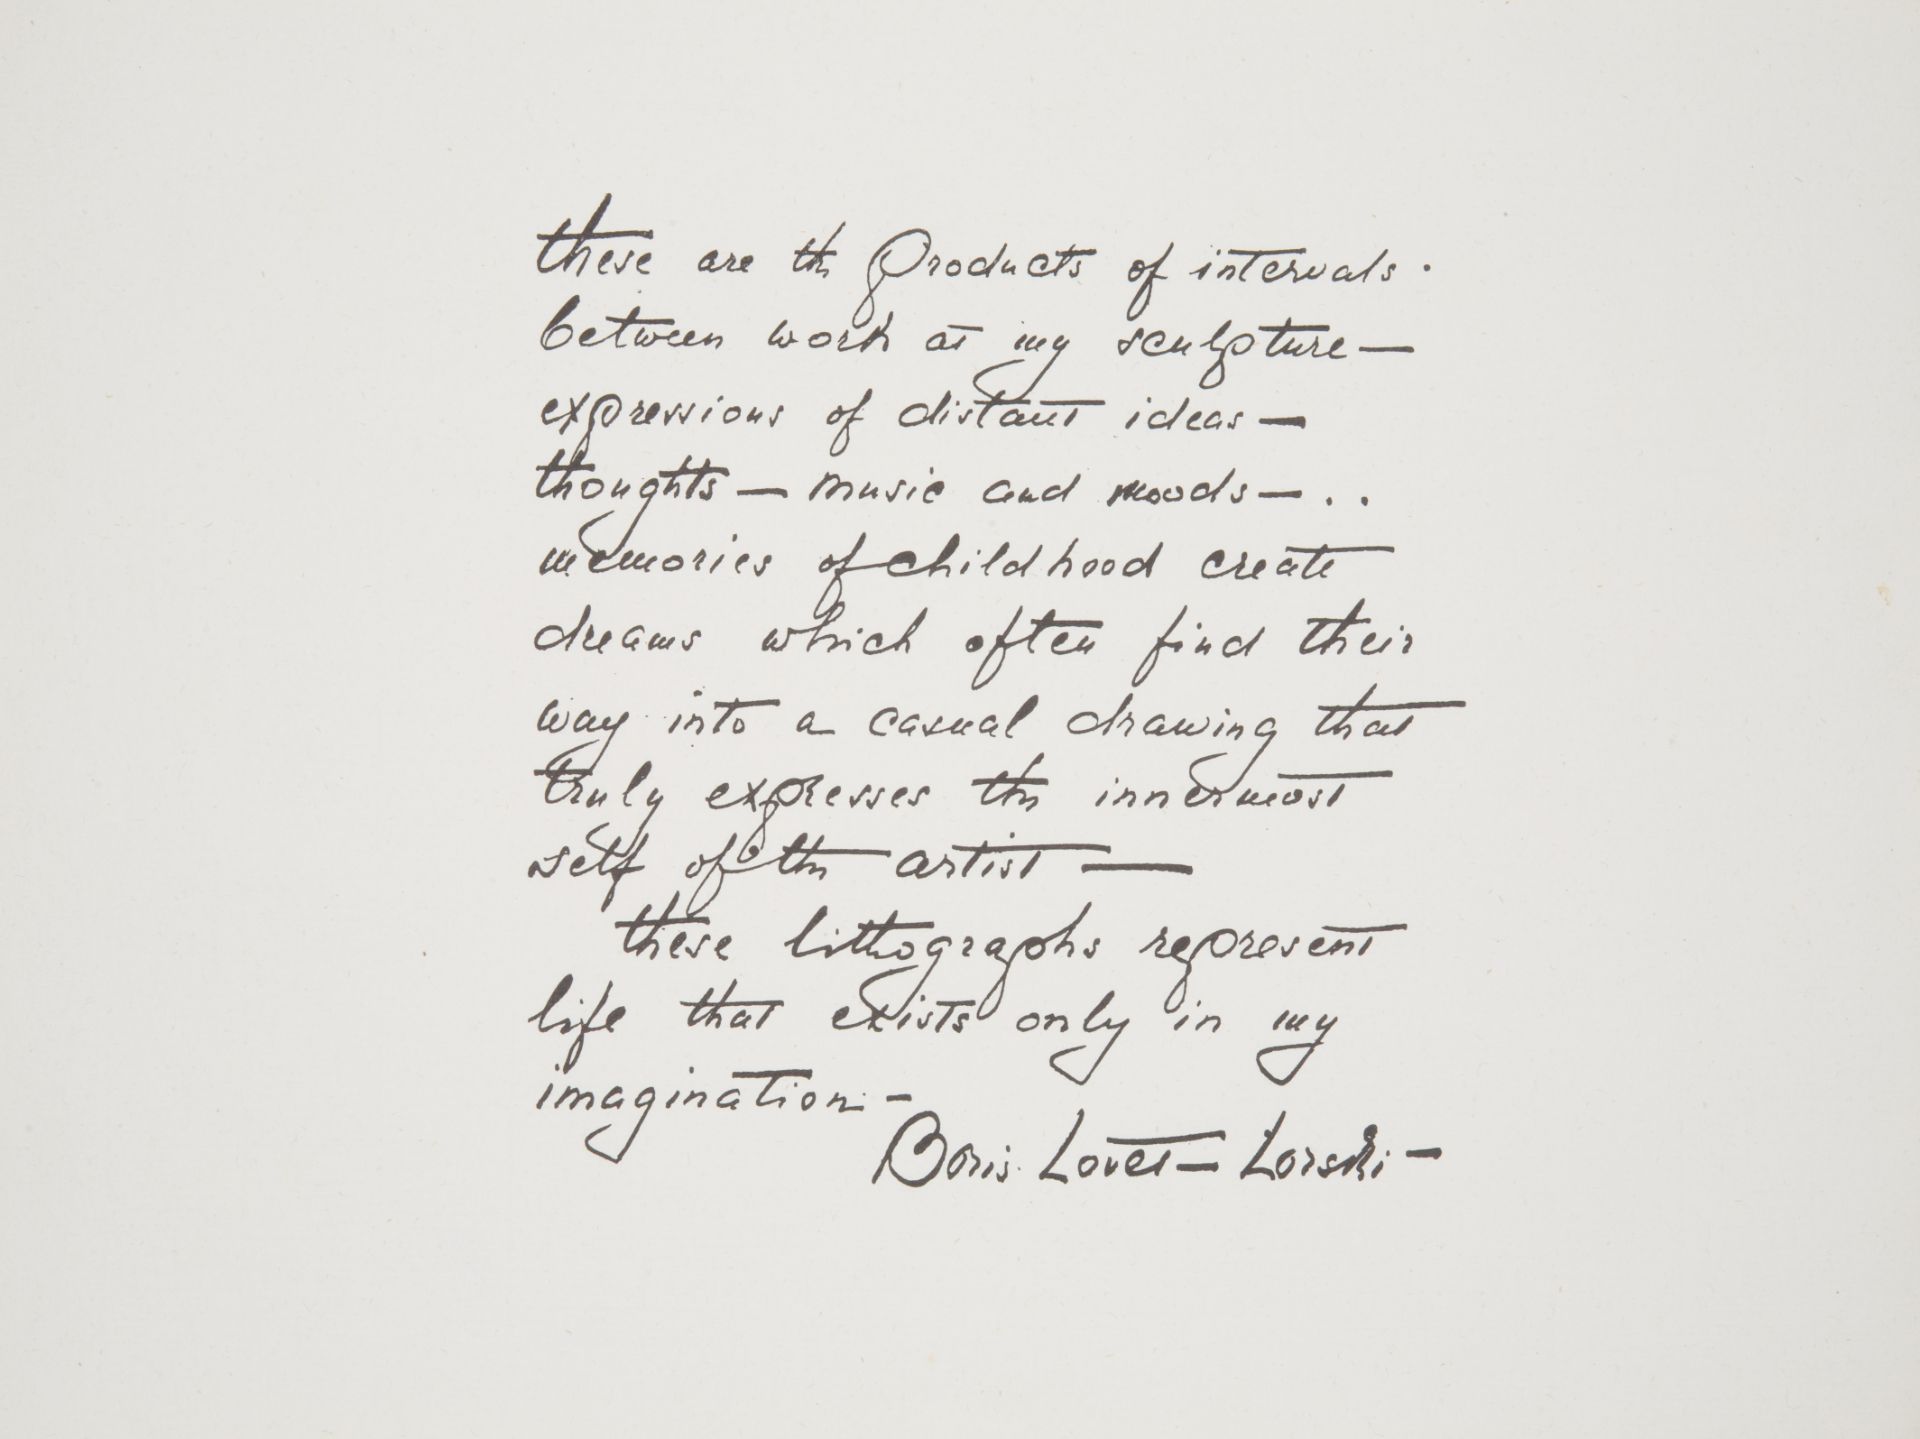 these are the Products of intervals.
between work at my sculpture —
expressions of distant ideas —
thoughts — music and moods — . .
memories of childhood create
dreams which often find their
way into a casual drawing that
truly expresses the innermost
self of the artist —
these lithographs represent
life that exists only in my
imagination. —
Boris Lovet — Lorski —